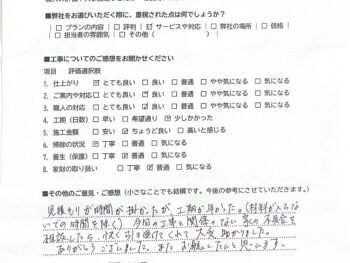 ■弊社をお選びいただく際に、重視された点は何でしょうか?
□プランの内容 □評判 ☑サービスや対応 □弊社の場所 □価格
□担当者の雰囲気 □その他( )
■工事についてのご感想をお聞かせください
項目 評価選択肢
1. 仕上がり ☑とても良い □良い □普通 □やや気になる □気になる
2. ご案内や対応 □とても良い ☑良い □普通 □やや気になる □気になる
3. 職人の対応 □とても良い ☑良い □普通 □やや気になる □気になる
4. 工期(日数) □早い □希望通り ☑少しかかった
5. 施工金額 □安い ☑ちょうど良い □高いと感じる
6. 掃除の状況 ☑丁寧 □普通 □気になる
7. 養生(保護) ☑丁寧 □普通 □気になる
8. 家財の取り扱い □丁寧 ☑普通 □気になる
■その他のご意見・ご感想(小さなことでも結構です。今後の参考にさせていただきます。)
見積もりが時間が掛かったが、工期は早かった。(材料が入らな
いでの時間を除く) 今回の工事を関係のない家の不具合を
相談したら、快く引き受けてくれて大変助かりました。
ありがとうございました。またお願いしたいと思います。